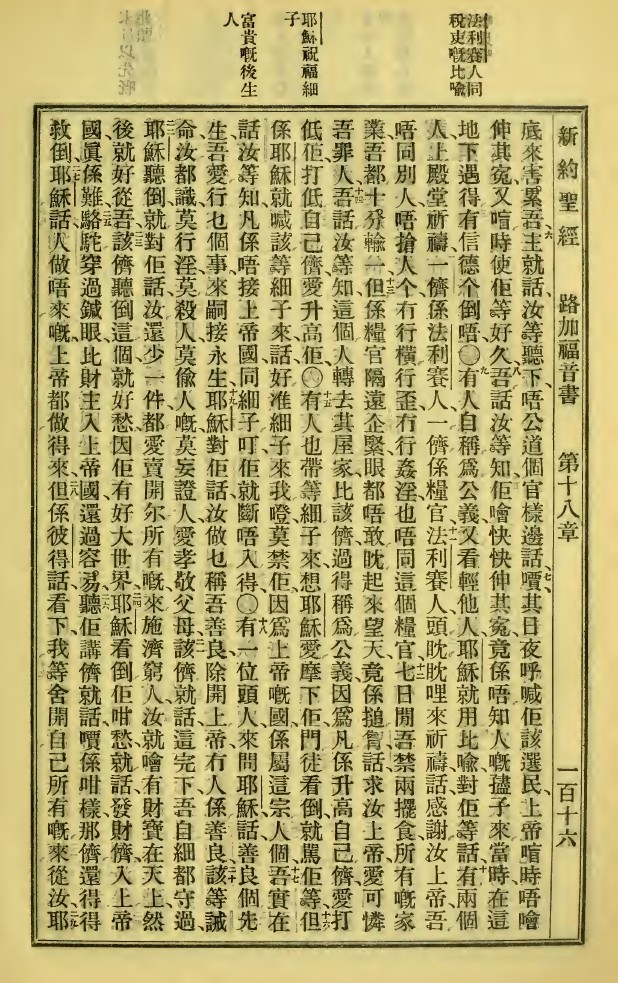 法利賽人同
稅吏嘅比喻
耶穌祝福細
子
富貴嘅後生
人
新約聖經 路加福音書 第十八章 一百十六
底來害累吾、六主就話汝等聽下、唔公道個官樣邊話、七嚽其日夜呼喊佢該選民、上帝喧時唔噲
伸其冤、又喧時使佢等好久、八吾話汝等知、佢噲快快伸其冤、竟係唔知人嘅孻子來當時、在這
地下遇得有信德个倒唔、〇九有人自稱爲公義、又看輕他人、耶穌就用比喻對佢等話、十有兩個
人上殿堂祈禱、一儕係法利賽人、一儕係糧官、十一法利賽人頭眈眈哩來祈禱話、感謝汝上帝、吾
唔同別人、唔搶人个、冇行橫行歪、冇行姦淫、也唔同這個糧官、十二七日間吾禁兩擺食、所有嘅家
業吾都十分輸一、十三但係糧官隔遠企緊、眼都唔敢眈起來望天、竟係搥胷話、求汝上帝愛可憐
吾罪人、十四吾話汝等知、這個人轉去其屋家、比該儕過得稱爲公義、因爲凡係升高自己儕、愛打
低佢、打低自己儕、愛升高佢、〇十五有人也帶等細子來、想耶穌愛摩下佢、門徒看倒就罵佢等、十六但
係耶穌就喊該等細子來話、好准細子來我嶝、莫禁佢、因爲上帝嘅國、係屬這宗人個、十七吾實在
話汝等知、凡係唔接上帝國同細子叮、佢就斷唔入得、〇十八有一位頭人來問耶穌話、善良個先
生、吾愛行乜個事來嗣接永生、十九耶穌對佢話、汝做乜稱吾善良、除開上帝冇人係善良、二十該等誡
命汝都識、莫行淫、莫殺人、莫偷人嘅、莫妄證人、愛孝敬父母、二一該儕就話、這完下吾自細都守過、
二二耶穌聽倒就對佢話、汝還少一件、都愛賣開尔所有嘅來施濟窮人、汝就噲有財寶在天上、然
後就好從吾、二三該儕聽倒這個就好愁、因佢有好大世界、二四耶穌看倒佢咁愁、就話、發財儕入上帝
國眞係難、二五駱駝穿過鍼眼、比財主入上帝國還過容易、二六聽佢講儕就話、嚽係咁樣、那儕還得得
救倒、二七耶穌話、人做唔來嘅、上帝都做得來、二八但係彼得話、看下、我等舍開自己所有嘅來從汝、二九耶